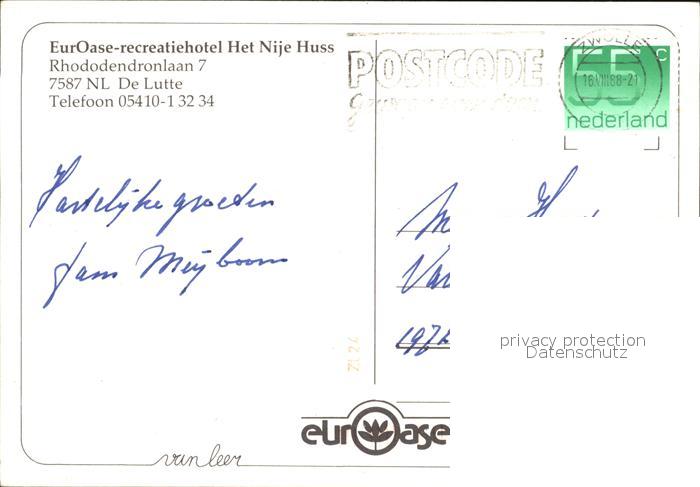 EurOase-recreatiehotel Het Nije Huss
Rhododendronlaan 7
7587 NL De Lutte
Telefoon 05410-1 32 34
POSTCODE
ZWOLLE
16.VIII.88-21
55 c
nederland
Hartelijke groeten
Jans Meyboom
privacy protection
Datenschutz
eurOase
van leer